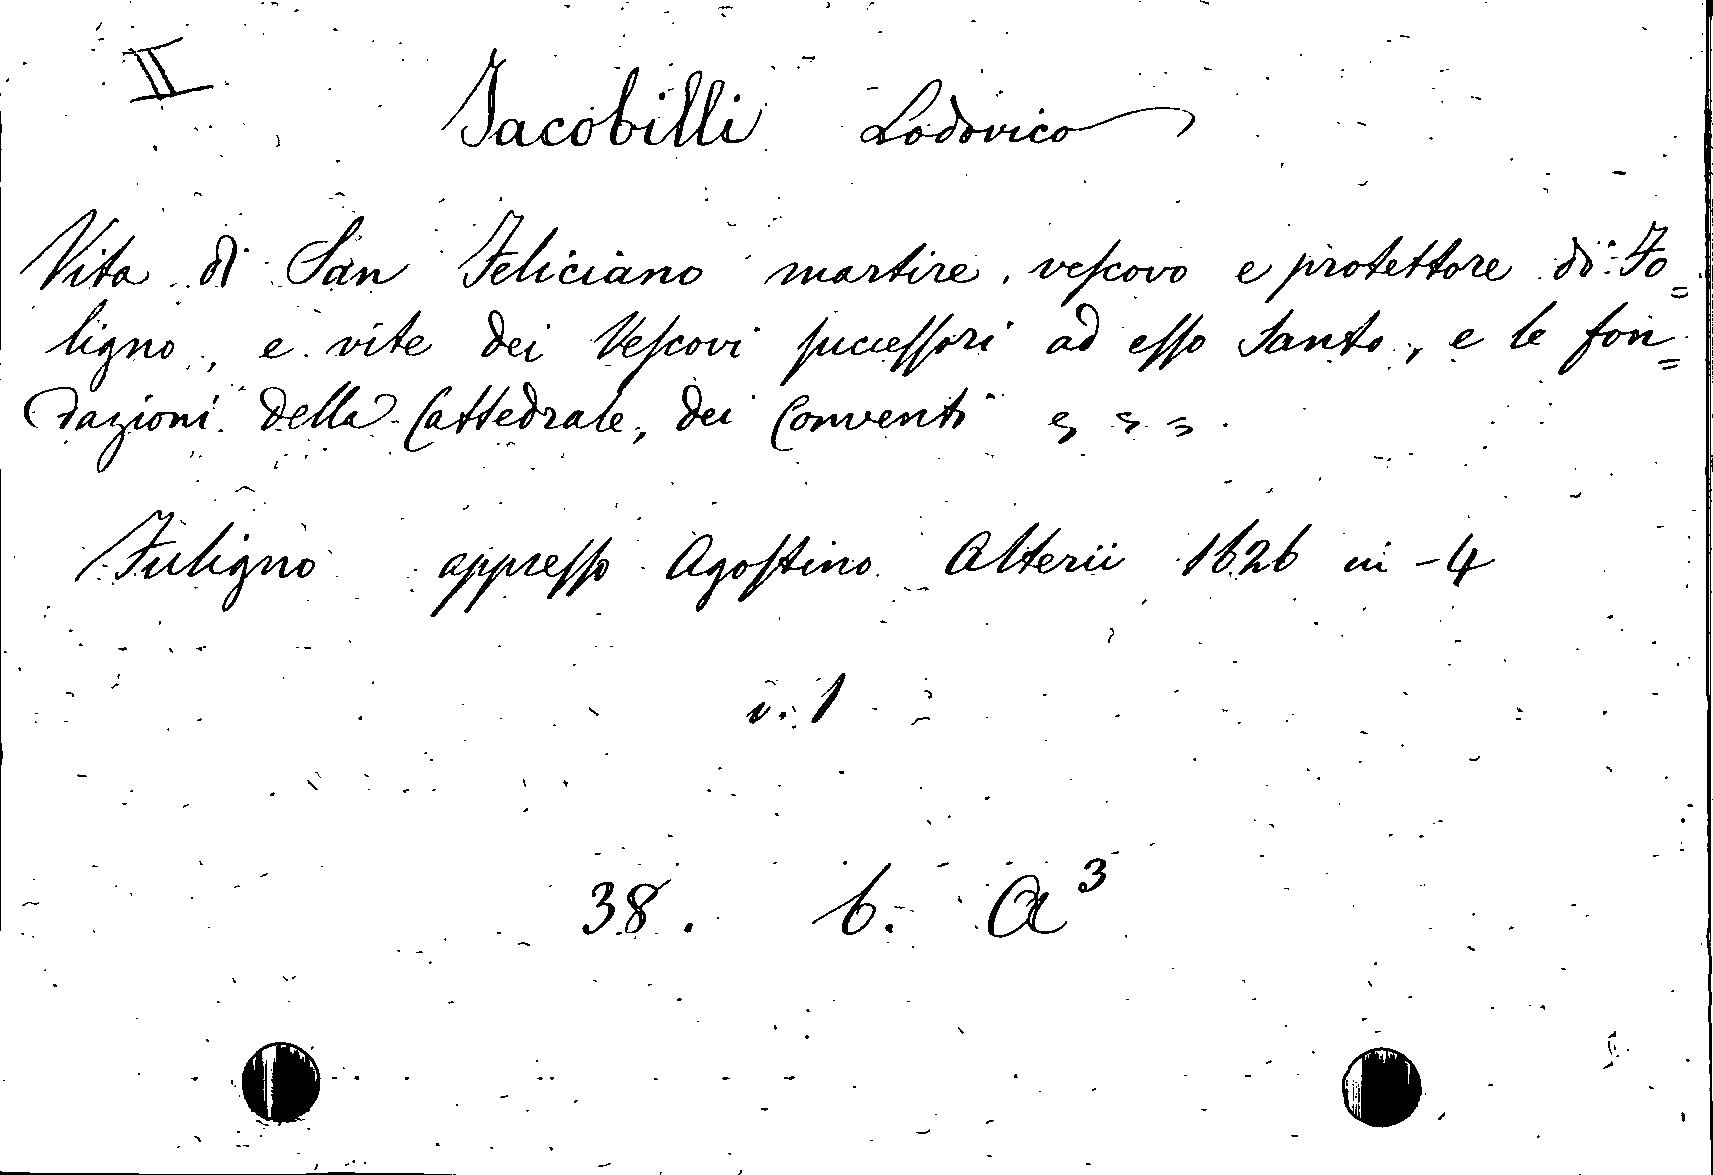 II
Jacobilli Lodovico
Vita di San Feliciano martire, vescovo e protettore di Fo=
ligno, e vite dei Vescovi successori ad esso Santo, e le fon=
dazioni della Cattedrale, dei Conventi
Fuligno appresso Agostino Alterii 1626 in-4
v. 1
38. b. A³